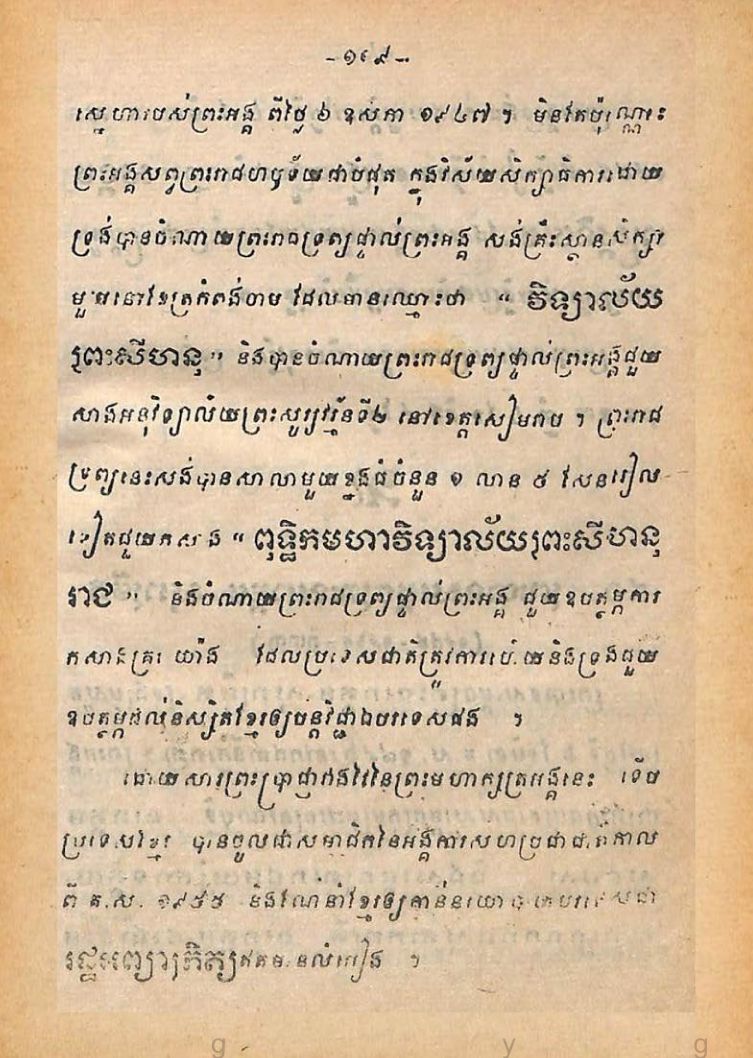 - ១៤៩ -
ស្នេហារបស់ព្រះអង្គ ពីថ្ងៃ ៦ ឧសភា ១៩៤៧ ។ មិនតែប៉ុណ្ណោះ
ព្រះអង្គសព្វព្រះរាជហឫទ័យជាបំផុត ក្នុងវិស័យសិក្សាធិការដោយ
ទ្រង់បានចំណាយព្រះរាជទ្រព្យផ្ទាល់ព្រះអង្គ សង់គ្រឹះស្ថានសិក្សា
មួយនៅខេត្រកំពង់ចាម ដែលមានឈ្មោះថា " វិទ្យាល័យ
ព្រះសីហនុ" និងបានចំណាយព្រះរាជទ្រព្យផ្ទាល់ព្រះអង្គជួយ
សាងអនុវិទ្យាល័យព្រះសូរ្យវរ្ម័នទី២ នៅខេត្តសៀមរាប ។ ព្រះរាជ
ទ្រព្យនេះសង់បានសាលាមួយខ្នងធំចំនួន ១ លាន ៥ សែនរៀល
ទៀតជួយកសាង " ពុទ្ធិកមហាវិទ្យាល័យព្រះសីហនុ
រាជ " និងចំណាយព្រះរាជទ្រព្យផ្ទាល់ព្រះអង្គ ជួយឧបត្ថម្ភការ
កសាងគ្រប់យ៉ាង ដែលប្រទេសជាតិត្រូវការ និងទ្រង់ជួយ
ឧបត្ថម្ភដល់និស្សិតខ្មែរឲ្យបន្តវិជ្ជាឯបរទេសផង ។
ដោយសារព្រះប្រាជ្ញាវាងវៃនៃព្រះមហាក្សត្រអង្គនេះ ទើប
ប្រទេសខ្មែរ បានចូលជាសមាជិកនៃអង្គការសហប្រជាជាតិកាល
ពី គ.ស. ១៩៥៥ និងណែនាំខ្មែរឲ្យកាន់នយោបាយបរទេសជា
រដ្ឋអព្យាក្រិត្យឥតមានលំអៀង ។